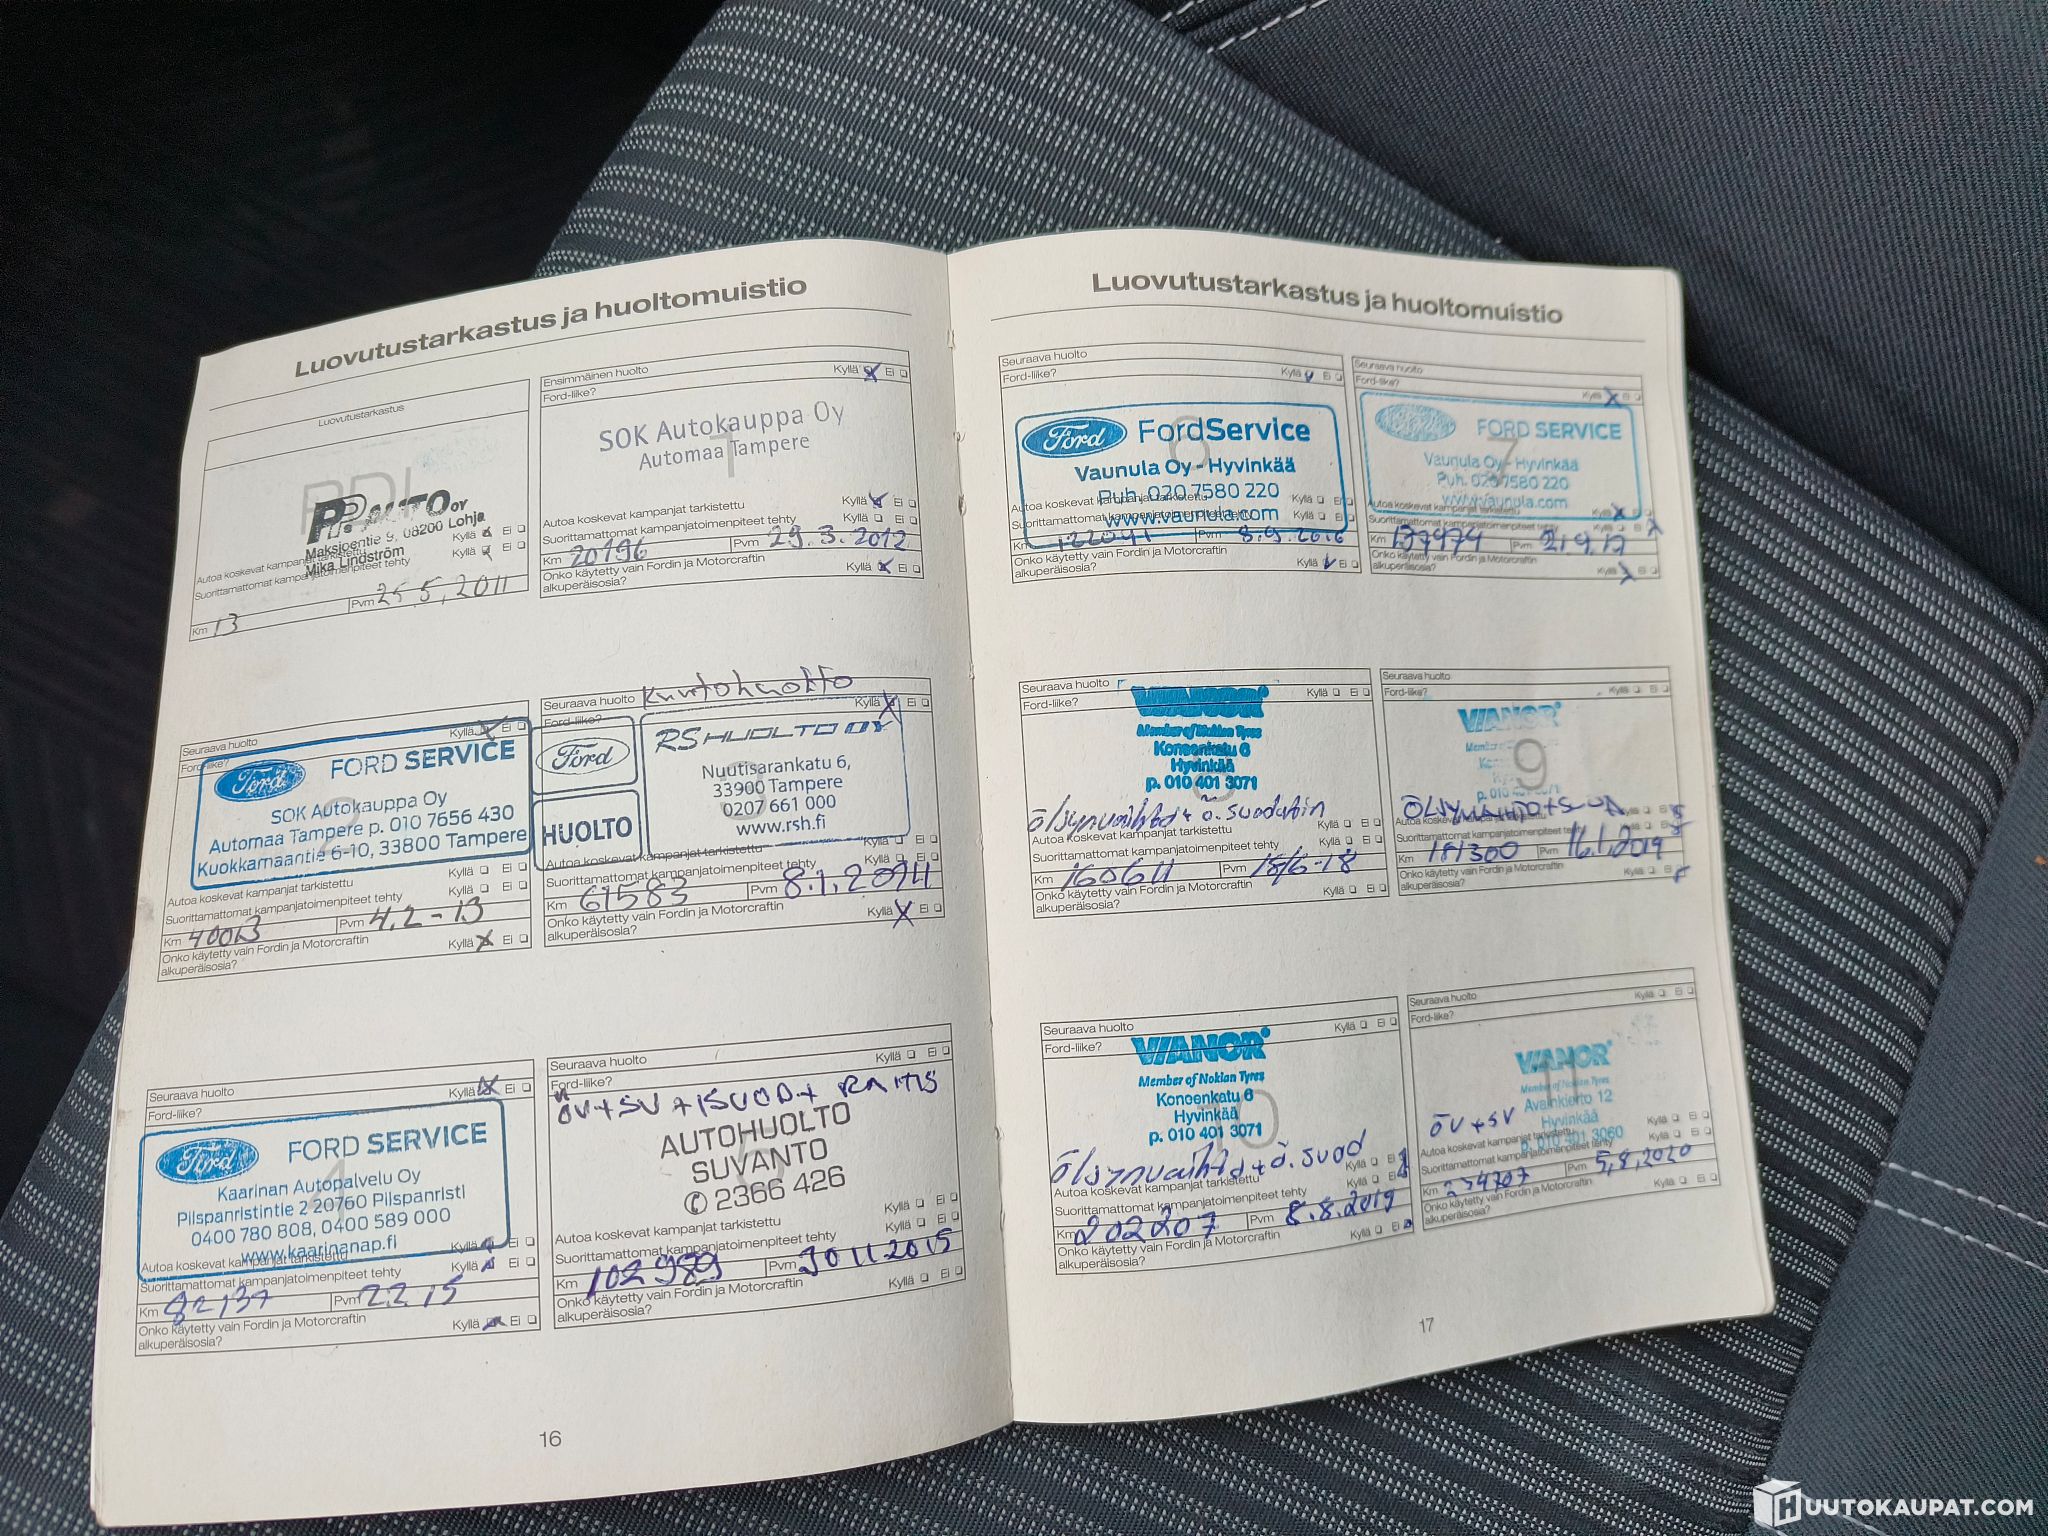 Luovutustarkastus ja huoltomuistio
Luovutustarkastus
PDI
AUTO OY
Maksjoentie 9, 08200 Lohja
Mika Lindström
Autoa koskevat kampanjat tarkistettu Kyllä Ei
Suorittamattomat kampanjatoimenpiteet tehty Kyllä Ei
Km 13 Pvm 25.5.2011
Ensimmäinen huolto
Ford-liike? Kyllä Ei
1
SOK Autokauppa Oy
Automaa Tampere
Autoa koskevat kampanjat tarkistettu Kyllä Ei
Suorittamattomat kampanjatoimenpiteet tehty Kyllä Ei
Km 20196 Pvm 29.3.2012
Onko käytetty vain Fordin ja Motorcraftin
alkuperäisosia? Kyllä Ei
Seuraava huolto
Ford-liike? Kyllä Ei
2
Ford FORD SERVICE
SOK Autokauppa Oy
Automaa Tampere p. 010 7656 430
Kuokkamaantie 6-10, 33800 Tampere
Autoa koskevat kampanjat tarkistettu Kyllä Ei
Suorittamattomat kampanjatoimenpiteet tehty Kyllä Ei
Km 40013 Pvm 4.2-13
Onko käytetty vain Fordin ja Motorcraftin
alkuperäisosia? Kyllä Ei
Seuraava huolto Kuntohuolto
Ford-liike? Kyllä Ei
3
Ford
HUOLTO
RS HUOLTO OY
Nuutisarankatu 6,
33900 Tampere
0207 661 000
www.rsh.fi
Autoa koskevat kampanjat tarkistettu Kyllä Ei
Suorittamattomat kampanjatoimenpiteet tehty Kyllä Ei
Km 61583 Pvm 8.1.2014
Onko käytetty vain Fordin ja Motorcraftin
alkuperäisosia? Kyllä Ei
Seuraava huolto
Ford-liike? Kyllä Ei
4
Ford FORD SERVICE
Kaarinan Autopalvelu Oy
Piispanristintie 2 20760 Piispanristi
0400 780 808, 0400 589 000
www.kaarinanap.fi
Autoa koskevat kampanjat tarkistettu Kyllä Ei
Suorittamattomat kampanjatoimenpiteet tehty Kyllä Ei
Km 82137 Pvm 2.2.15
Onko käytetty vain Fordin ja Motorcraftin
alkuperäisosia? Kyllä Ei
Seuraava huolto
Ford-liike? Kyllä Ei
ÖV+SV+ISUOD+RAITIS
5
AUTOHUOLTO
SUVANTO
✆ 2366 426
Autoa koskevat kampanjat tarkistettu Kyllä Ei
Suorittamattomat kampanjatoimenpiteet tehty Kyllä Ei
Km 102989 Pvm 30 11 2015
Onko käytetty vain Fordin ja Motorcraftin
alkuperäisosia? Kyllä Ei
16
Luovutustarkastus ja huoltomuistio
Seuraava huolto
Ford-liike? Kyllä Ei
6
Ford FordService
Vaunula Oy - Hyvinkää
Puh. 020 7580 220
www.vaunula.com
Autoa koskevat kampanjat tarkistettu Kyllä Ei
Suorittamattomat kampanjatoimenpiteet tehty Kyllä Ei
Km Pvm 8.9.2016
Onko käytetty vain Fordin ja Motorcraftin
alkuperäisosia? Kyllä Ei
Seuraava huolto
Ford-liike? Kyllä Ei
7
FORD SERVICE
Vaunula Oy - Hyvinkää
Puh. 020 7580 220
www.vaunula.com
Autoa koskevat kampanjat tarkistettu
Suorittamattomat kampanjatoimenpiteet tehty
Km 137974 Pvm 21.9.17
Onko käytetty vain Fordin ja Motorcraftin
alkuperäisosia? Kyllä Ei
Seuraava huolto
Ford-liike? Kyllä Ei
VIANOR
Member of Nokian Tyres
Koneenkatu 6
Hyvinkää
p. 010 401 3071
Öljynvaihto + ö.suodatin
Autoa koskevat kampanjat tarkistettu Kyllä Ei
Suorittamattomat kampanjatoimenpiteet tehty Kyllä Ei
Km 160611 Pvm 18/6-18
Onko käytetty vain Fordin ja Motorcraftin
alkuperäisosia? Kyllä Ei
Seuraava huolto
Ford-liike? Kyllä Ei
9
VIANOR
Autoa koskevat kampanjat tarkistettu Kyllä Ei
Suorittamattomat kampanjatoimenpiteet tehty
Km 181300 Pvm 16.1.2019
Onko käytetty vain Fordin ja Motorcraftin
alkuperäisosia? Kyllä Ei
Seuraava huolto
Ford-liike? Kyllä Ei
10
VIANOR
Member of Nokian Tyres
Koneenkatu 6
Hyvinkää
p. 010 401 3071
Öljynvaihto + ö.suod
Autoa koskevat kampanjat tarkistettu Kyllä Ei
Suorittamattomat kampanjatoimenpiteet tehty Kyllä Ei
Km 202207 Pvm 8.8.2019
Onko käytetty vain Fordin ja Motorcraftin
alkuperäisosia? Kyllä Ei
Seuraava huolto
Ford-liike? Kyllä Ei
11
VIANOR
Member of Nokian Tyres
Avainkierto 12
Hyvinkää
p. 010 401 3060
ÖV+SV
Autoa koskevat kampanjat tarkistettu Kyllä Ei
Suorittamattomat kampanjatoimenpiteet tehty Kyllä Ei
Km 234707 Pvm 5.8.2020
Onko käytetty vain Fordin ja Motorcraftin
alkuperäisosia? Kyllä Ei
17
HUUTOKAUPAT.COM